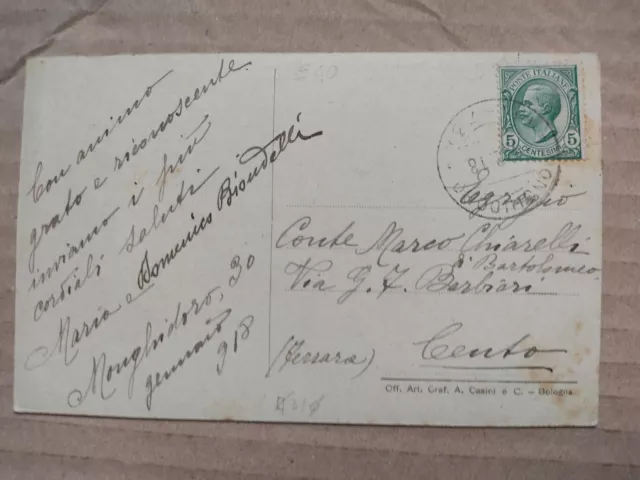 Con animo
grato e riconoscente
inviamo i più
cordiali saluti
Maria e Domenico Biondelli
Monghidoro, 30
gennaio
918
POSTE ITALIANE
5 5
CENTESIMI
Egregio
Conte Marco Chiarelli
Bartolomeo
Via G. F. Barbieri
(Ferrara) Cento
Off. Art. Graf. A. Casini e C. - Bologna